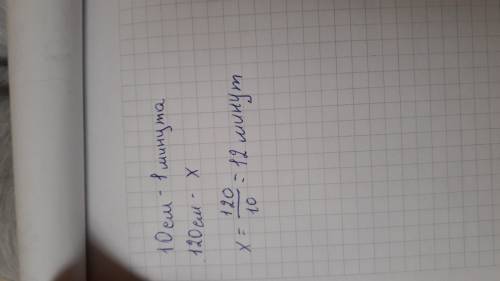 10 см - 1 минута
120 см - x
x = 120/10 = 12 минут